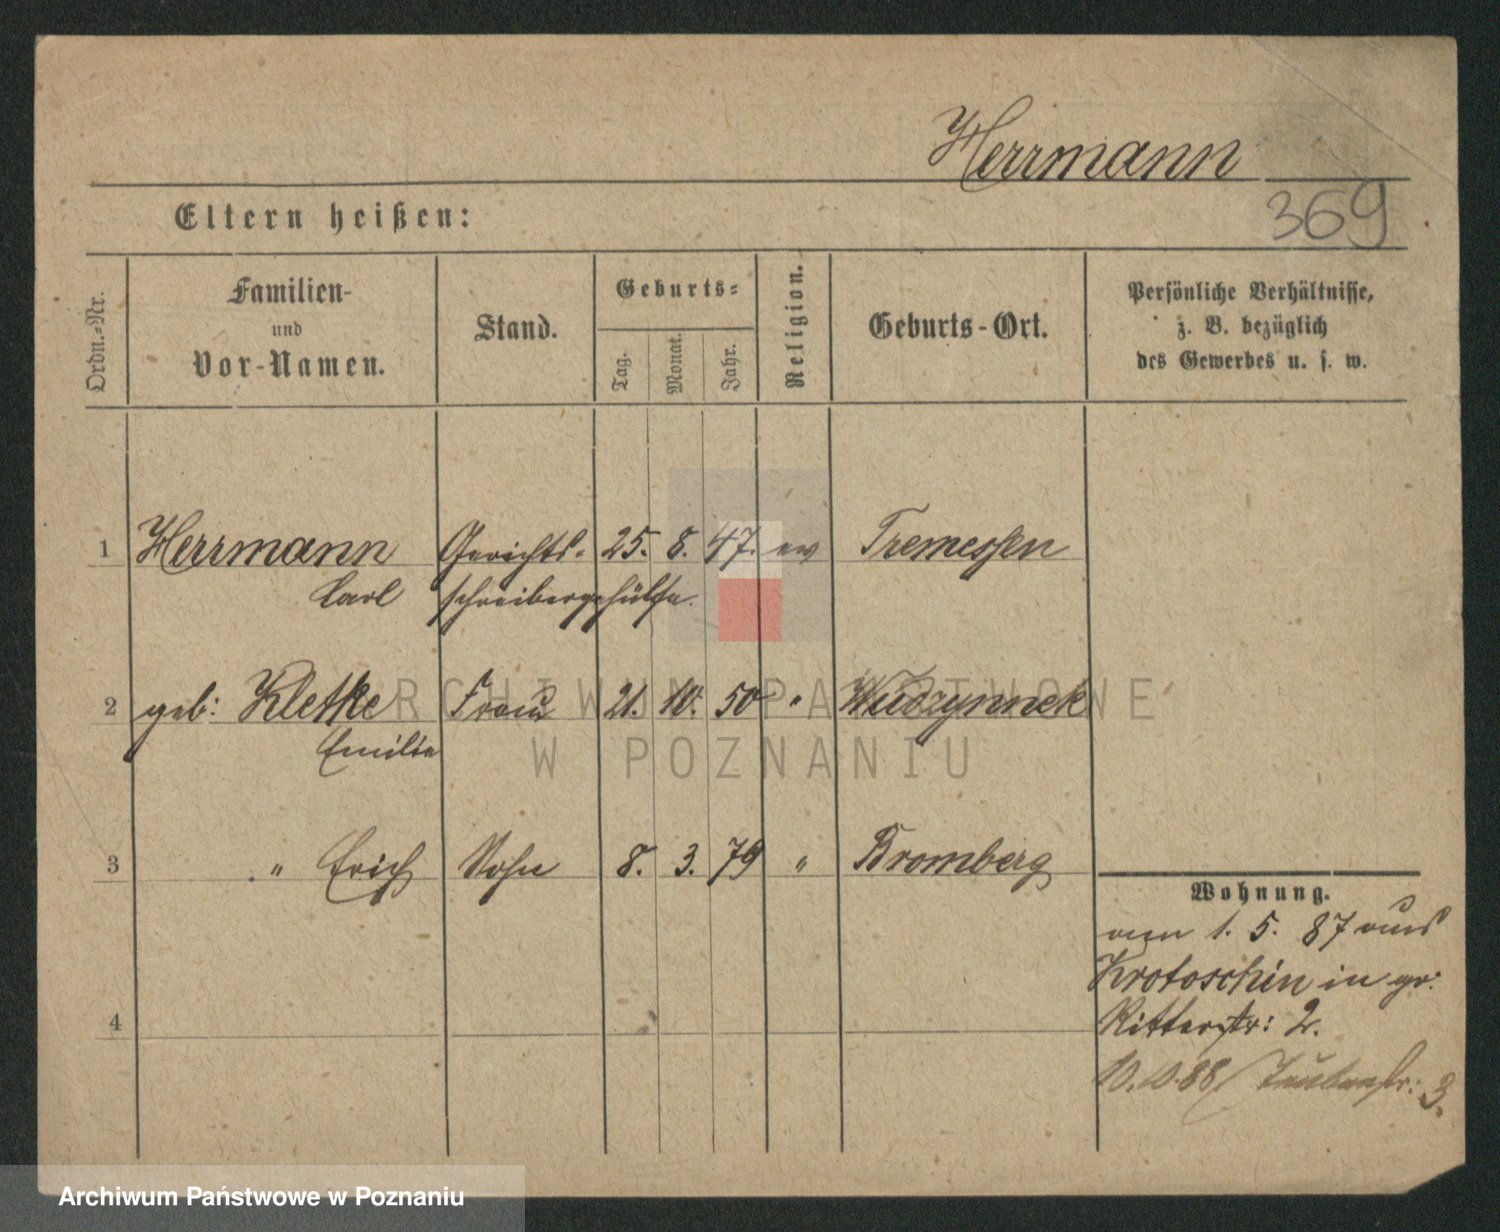 Herrmann
369
Eltern heißen:
Ordn.-Nr.
Familien-
und
Vor-Namen.
Stand.
Geburts-
Tag.
Monat.
Jahr.
Religion.
Geburts-Ort.
Persönliche Verhältnisse,
z. B. bezüglich
des Gewerbes u. s. w.
1 Herrmann Gerichts- 25. 8. 47. ev Tremessen
Carl schreibergehülfe.
2 geb: Kletke Frau 21. 10. 50 " Wudzynnek
Emilie
3 " Erich Sohn 8. 3. 79 " Bromberg
4
Wohnung.
1. 5. 87 aus
Krotoschin in gr:
Ritterstr: 2.
10.10.88 Taubenstr: 3.
ARCHIWUM PAŃSTWOWE
W POZNANIU
Archiwum Państwowe w Poznaniu